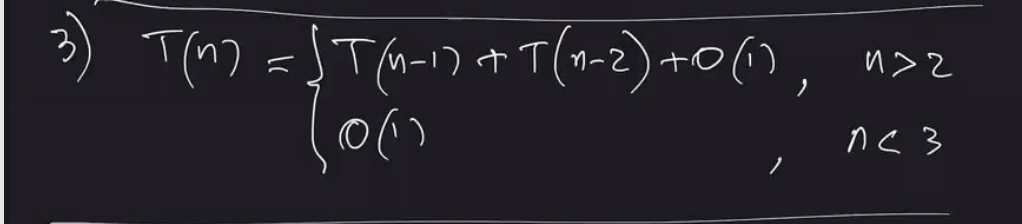 3) T(n) = { T(n-1) + T(n-2) + O(1), n > 2
O(1), n < 3